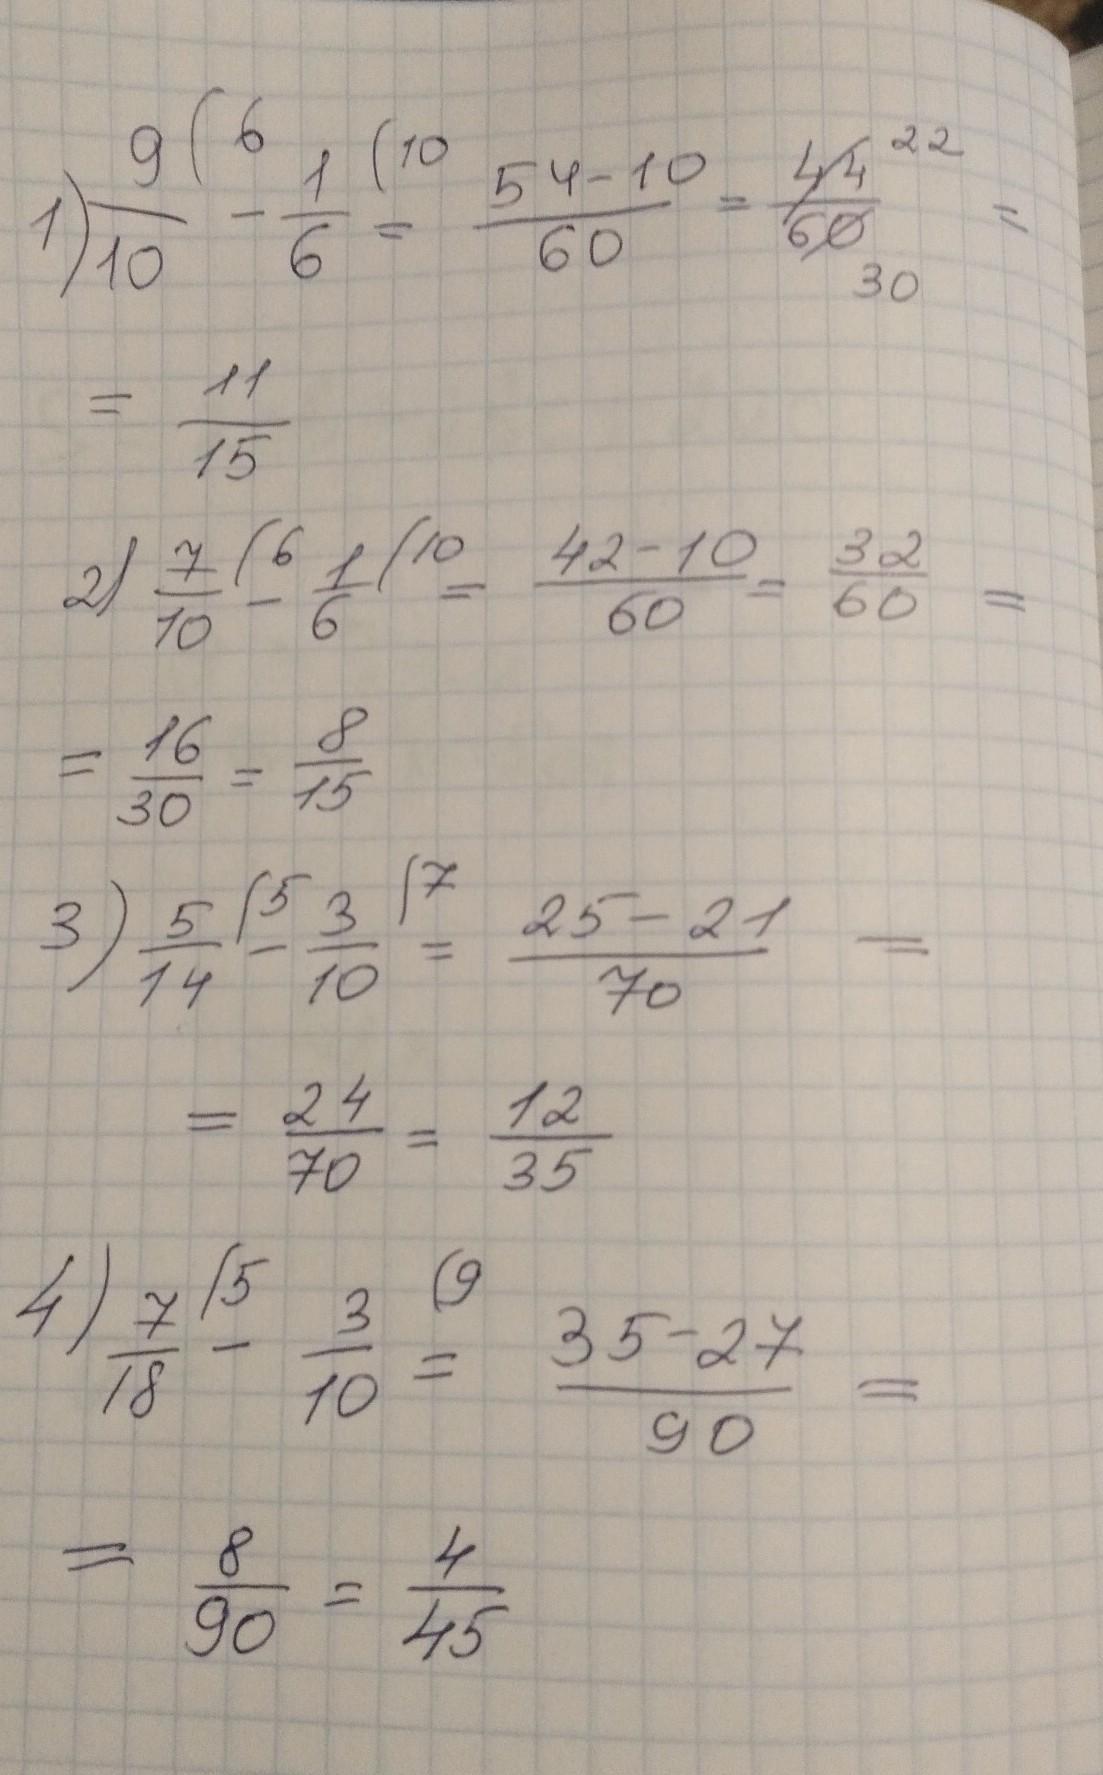 1) 9/10 (6 - 1/6 (10 = 54-10/60 = 44/60 22 30 =
= 11/15
2) 7/10 (6 - 1/6 (10 = 42-10/60 = 32/60 =
= 16/30 = 8/15
3) 5/14 (5 - 3/10 (7 = 25-21/70 =
= 24/70 = 12/35
4) 7/18 (5 - 3/10 (9 = 35-27/90 =
= 8/90 = 4/45